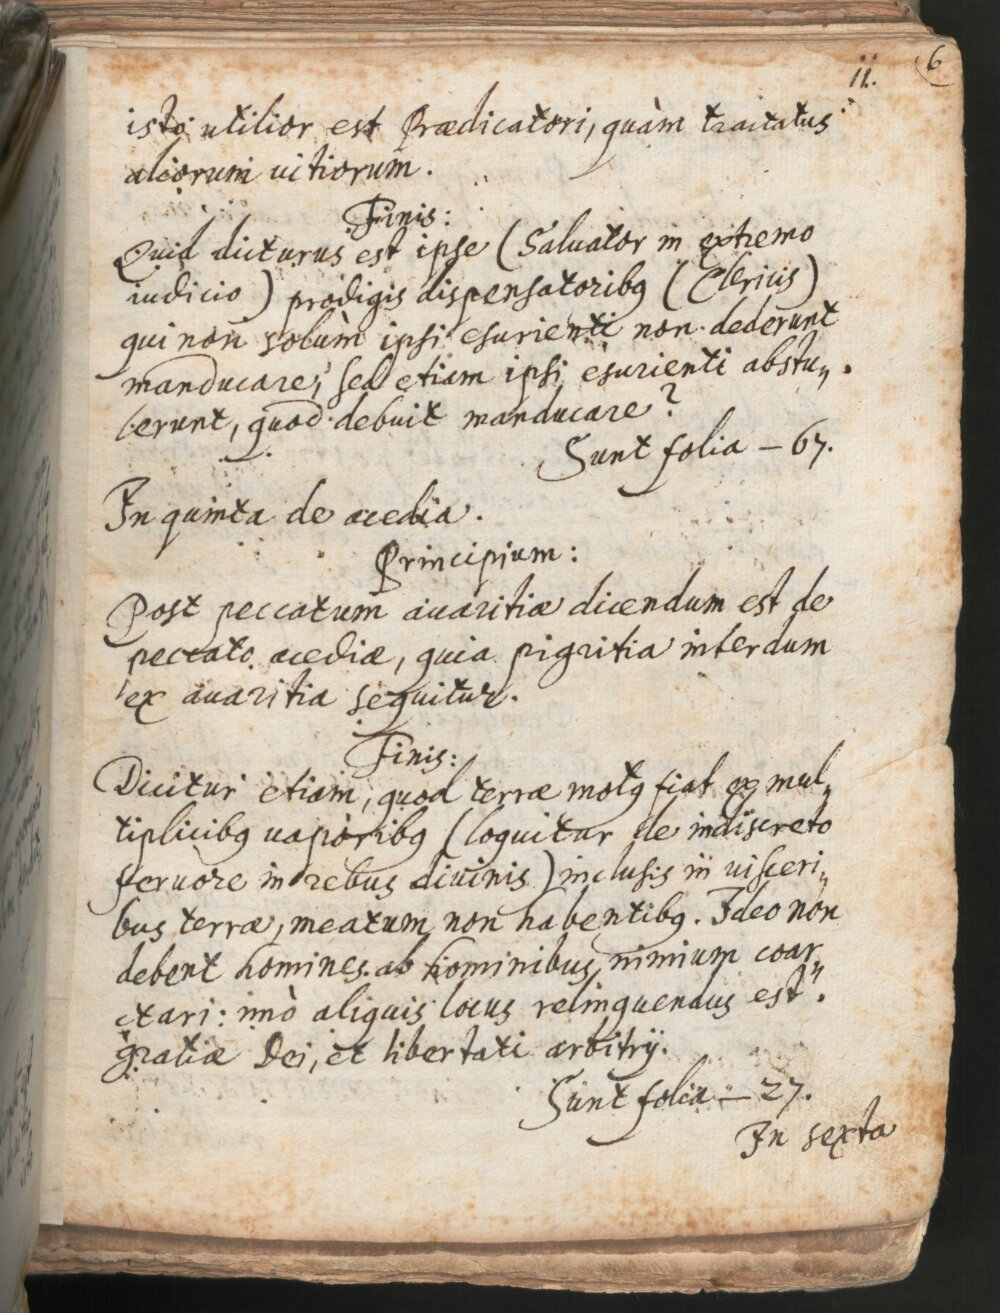 11. 6
iste utilior est Prædicatori, quàm tractatus
aliorum uitiorum.
Finis:
Quid dicturus est ipse (Saluator in extremo
iudicio) prodigis dispensatoribꝫ (Clericis)
qui non solùm ipsi esurienti non dederunt
manducare, sed etiam ipsi esurienti abstu„
lerunt, quod debuit manducare?
Sunt folia — 67.
In quinta de acedia.
Principium:
Post peccatum auaritiæ dicendum est de
peccato acediæ, quia pigritia interdum
ex auaritia sequitur.
Finis:
Dicitur etiam, quod terræ motꝫ fiat ex mul„
tiplicibꝫ uaporibꝫ (loquitur de indiscreto
feruore in rebus diuinis) inclusis in uisceri„
bus terræ, meatum non habentibꝫ. Ideo non
debent homines ab hominibus nimium coar„
ctari: imò aliquis locus relinquendus est
gratiæ Dei, et libertati arbitrij.
Sunt folia — 27.
In sexta